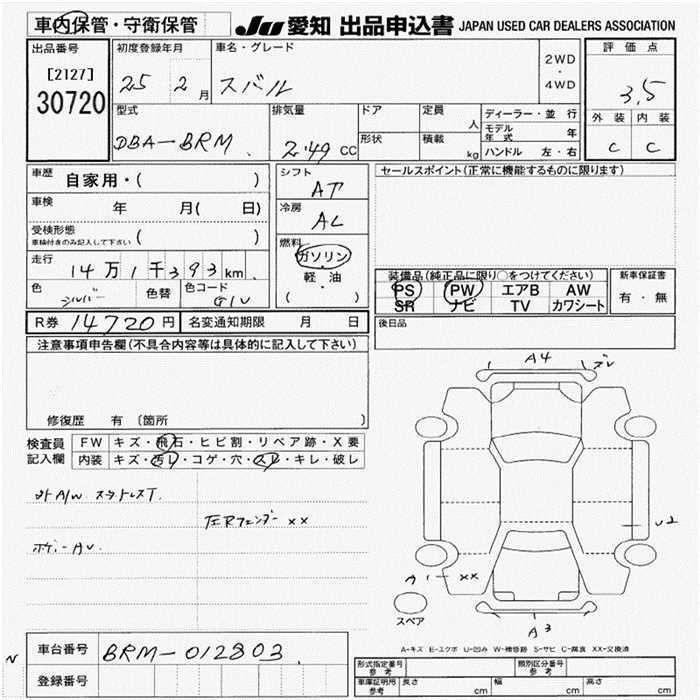 車内保管・守衛保管
JU 愛知 出品申込書 JAPAN USED CAR DEALERS ASSOCIATION
出品番号
[2127]
30720
初度登録年月
25 2月
車名・グレード
スバル
2WD
・
4WD
評価点
3.5
外装 内装
C C
型式
DBA-BRM
排気量
2.49 CC
ドア
形状
定員
人
積載
kg
ディーラー・並行
モデル年式 年
ハンドル 左・右
車歴
自家用・( )
車検
年 月( 日)
受検形態
車検付きのみ記入して下さい ( )
走行
14万1千393km
色
シルバー
色替
色コード
G1U
シフト
AT
冷房
AC
燃料
ガソリン
軽・油
( )
セールスポイント(正常に機能するものに限ります)
装備品(純正品に限り○をつけてください)
PS PW エアB AW
SR ナビ TV カワシート
新車保証書
有・無
R券 14720円
名変通知期限 月 日
後日品
注意事項申告欄(不具合内容等は具体的に記入して下さい)
修復歴 有 〔箇所 〕
検査員
記入欄
FW キズ・飛石・ヒビ割・リペア跡・X要
内装 キズ・汚レ・コゲ・穴・スレ・キレ・破レ
外A/W スタッドレスT.
左Rフェンダー xx
ボデーAU
A4
ズレ
U2
A1
xx
A3
スペア
A-キズ E-エクボ U-凹み W-補修跡 S-サビ C-腐食 XX-交換済
N
車台番号
BRM-012803
登録番号
形式指定番号
参考
類別区分番号
参考
車庫証明用
参考
長さ cm
幅 cm
高さ cm